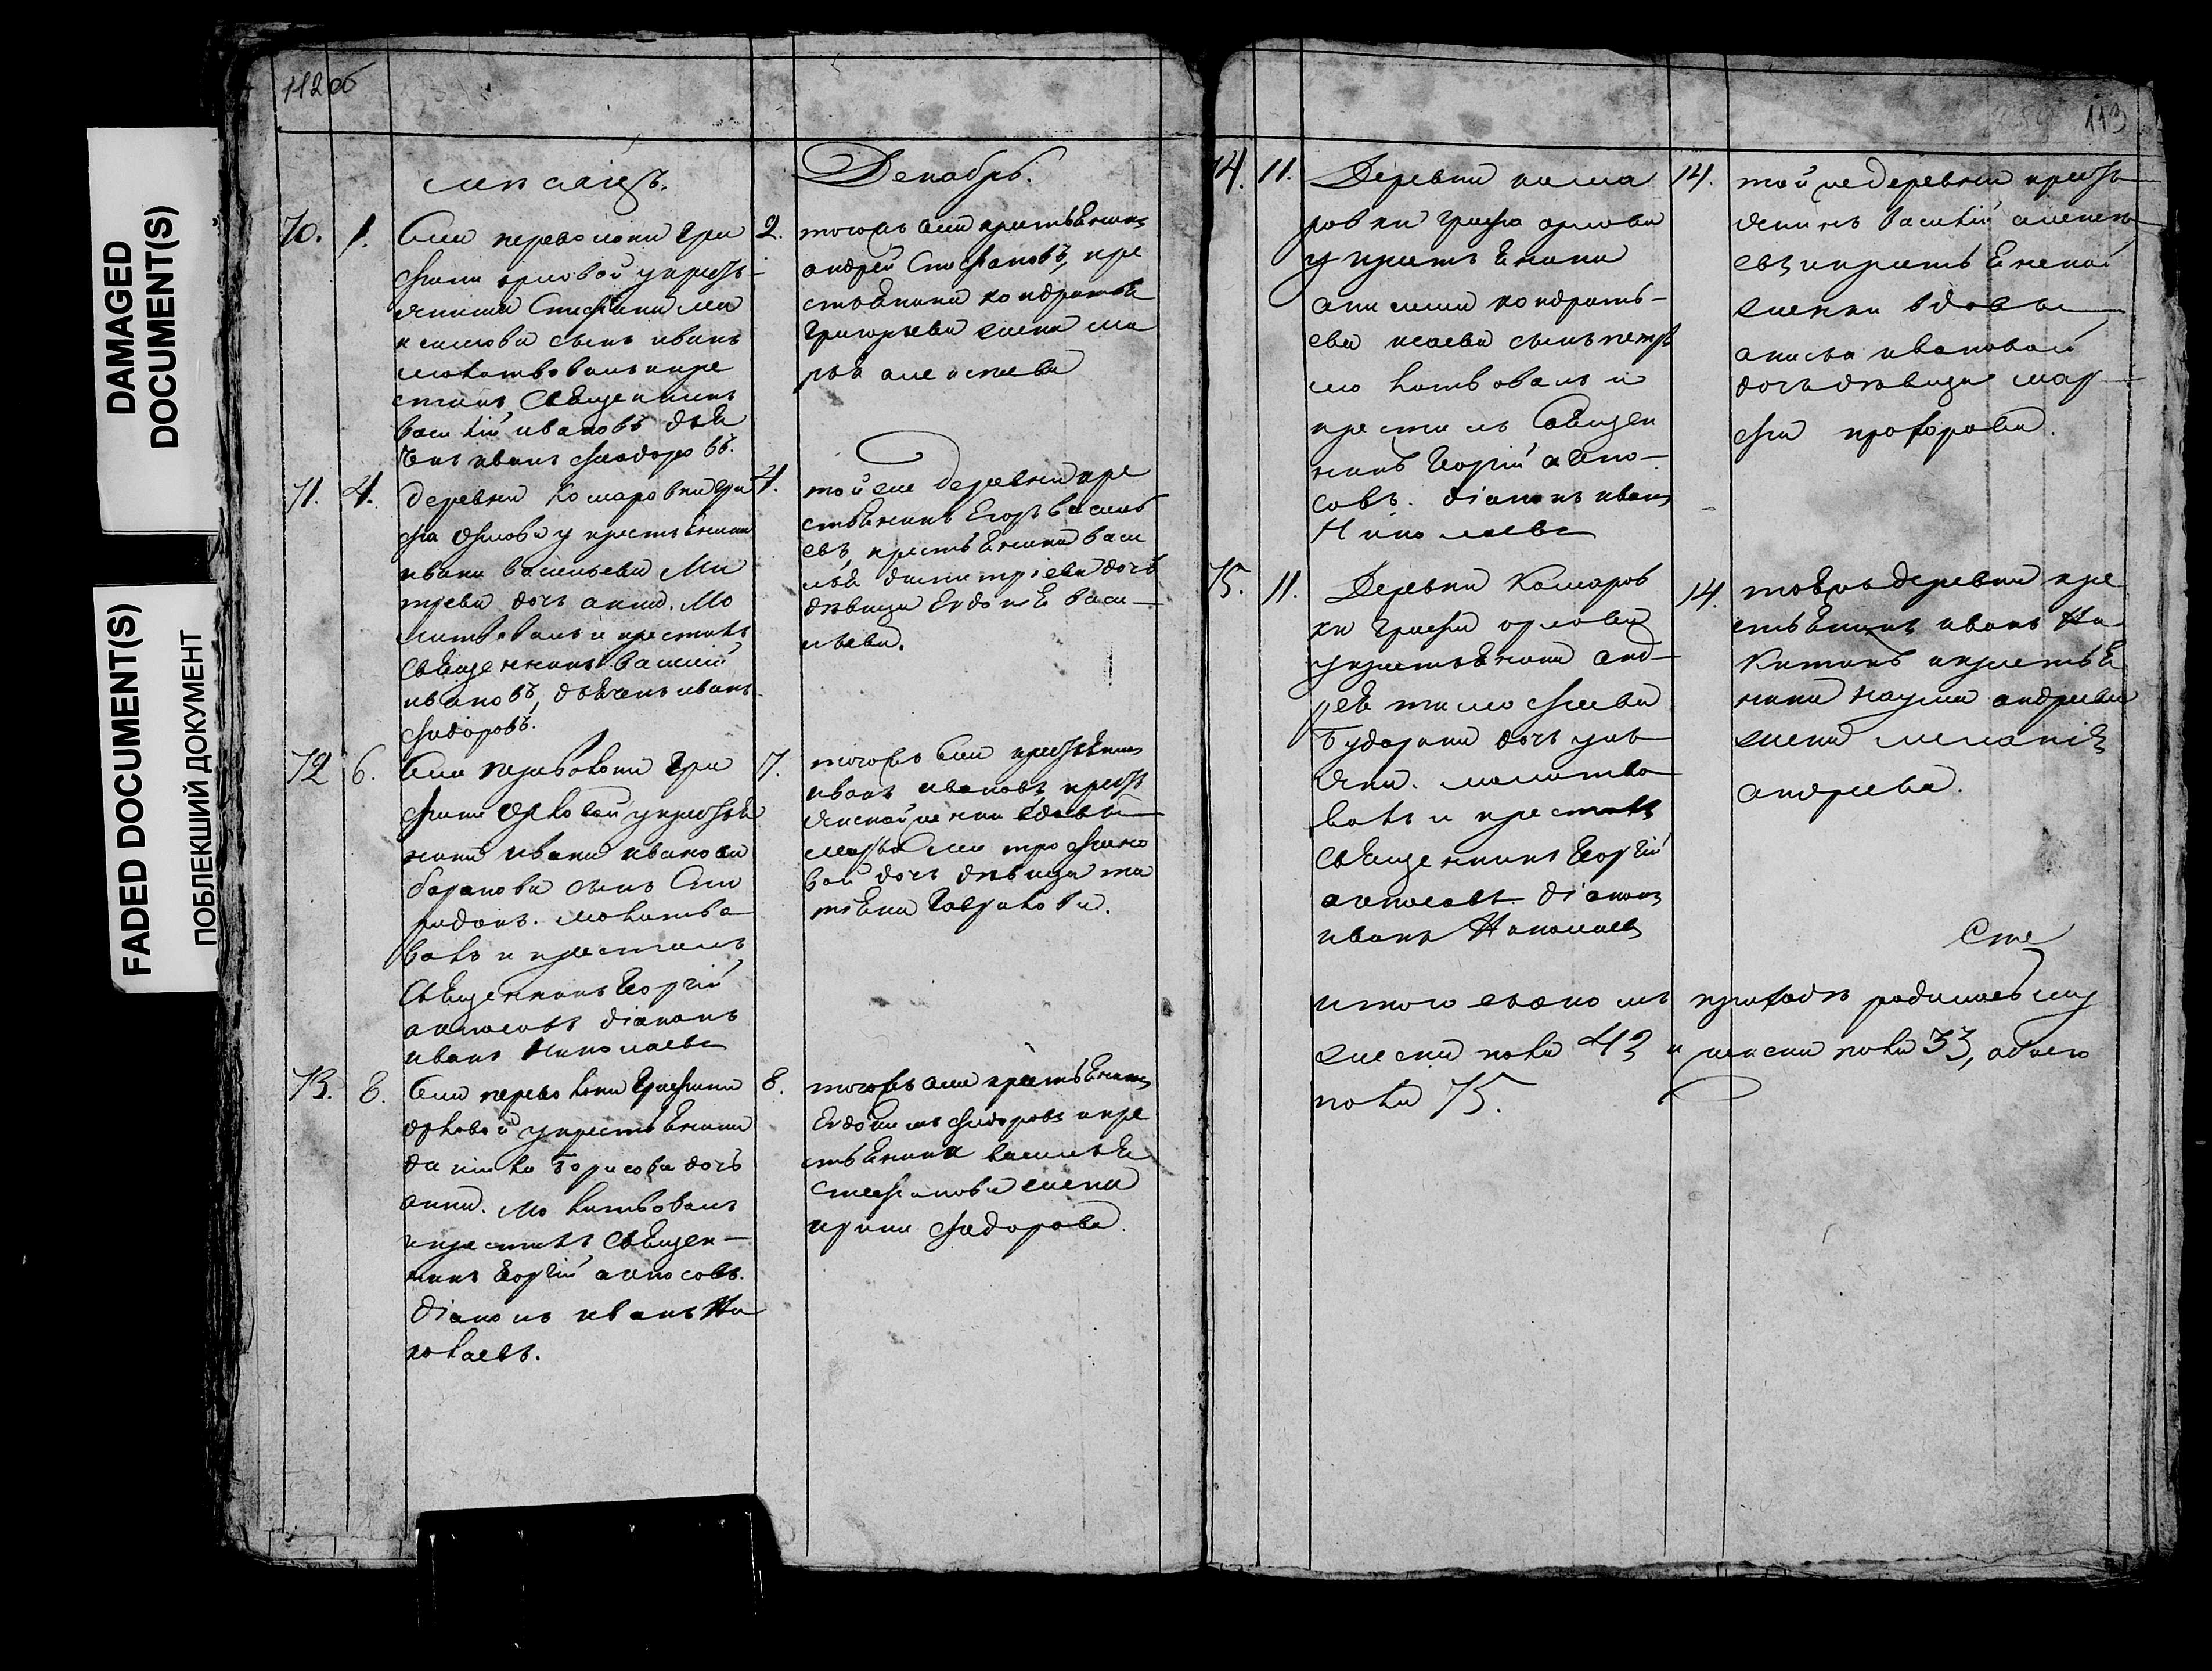 DAMAGED
DOCUMENT(S)
FADED DOCUMENT(S)
ПОБЛЕКШИЙ ДОКУМЕНТ
112 об
месяцъ.
Декабрь.
70. 1.
Села переволоки гра
фини орловой у кресть
янина Стефана ма
ксимова сынъ иванъ
молитвовалъ и кре
стилъ священникъ
василий ивановъ дья
чекъ иванъ фиодоровъ.
2.
тогожъ села крестьянинъ
андрей Стефановъ, кре
стьянина кондратья
Григорьева жена ма
рья алексеева
71. 4.
Деревни комаровки гра
фа орлова у крестьянина
ивана васильева Ми
треева дочь анна. Мо
литвовалъ и крестилъ
священникъ василий
ивановъ, дьячекъ иванъ
фиодоровъ.
4.
той же деревни кре
стьянинъ Егоръ василь
евъ, крестьянина васи
лья димитріева дочь
дѣвица Евдокія васи
льева.
72 6.
Села переволоки гра
фини Орловой у крестья
нина ивана иванова
баранова сынъ Спи
ридонъ. молитво
валъ и крестилъ
священникъ Георгій
аммосовъ діаконъ
иванъ Николаевъ
7.
тогожъ села крестьянинъ
иванъ ивановъ кресть
янской женки вдовы
марьи митрофано
вой дочь дѣвица та
тьяна Гаврилова.
73. 8.
Села переволоки Графини
орловой у крестьянина
данила борисова дочь
анна. молитвовалъ
и крестилъ священ
никъ Георгій аммосовъ.
діаконъ иванъ Ни
колаевъ.
8.
тогожъ села крестьянинъ
Евдокимъ фиодоровъ и кре
стьянина василья
Стефанова жена
ирина фиодорова.
113
74. 11.
Деревни кама
ровки графа орлова
у крестьянина
анисима кондрать
ева исаева сынъ петръ
молитвовалъ и
крестилъ священ
никъ Георгій аммо
совъ. діаконъ иванъ
Николаевъ
14.
той же деревни кресть
янинъ василий алексе
евъ и крестьянской
женки вдовы
анисьи ивановой
дочь дѣвица мар
фа прохорова.
75. 11.
Деревни Камаров
ки графа орлова
у крестьянина анд
рея тимофеева
бударина дочь уль
яна. молитво
валъ и крестилъ
священникъ Георгій
аммосовъ діаконъ
иванъ Николаевъ
14.
тояжъ деревни кре
стьянинъ иванъ Ни
китинъ и крестья
нина наума андреева
жена меланія
андреева.
Сте
итого всякомъ приходѣ родилось муж
жеска пола 42 и женска пола 33, обоего
пола 75.